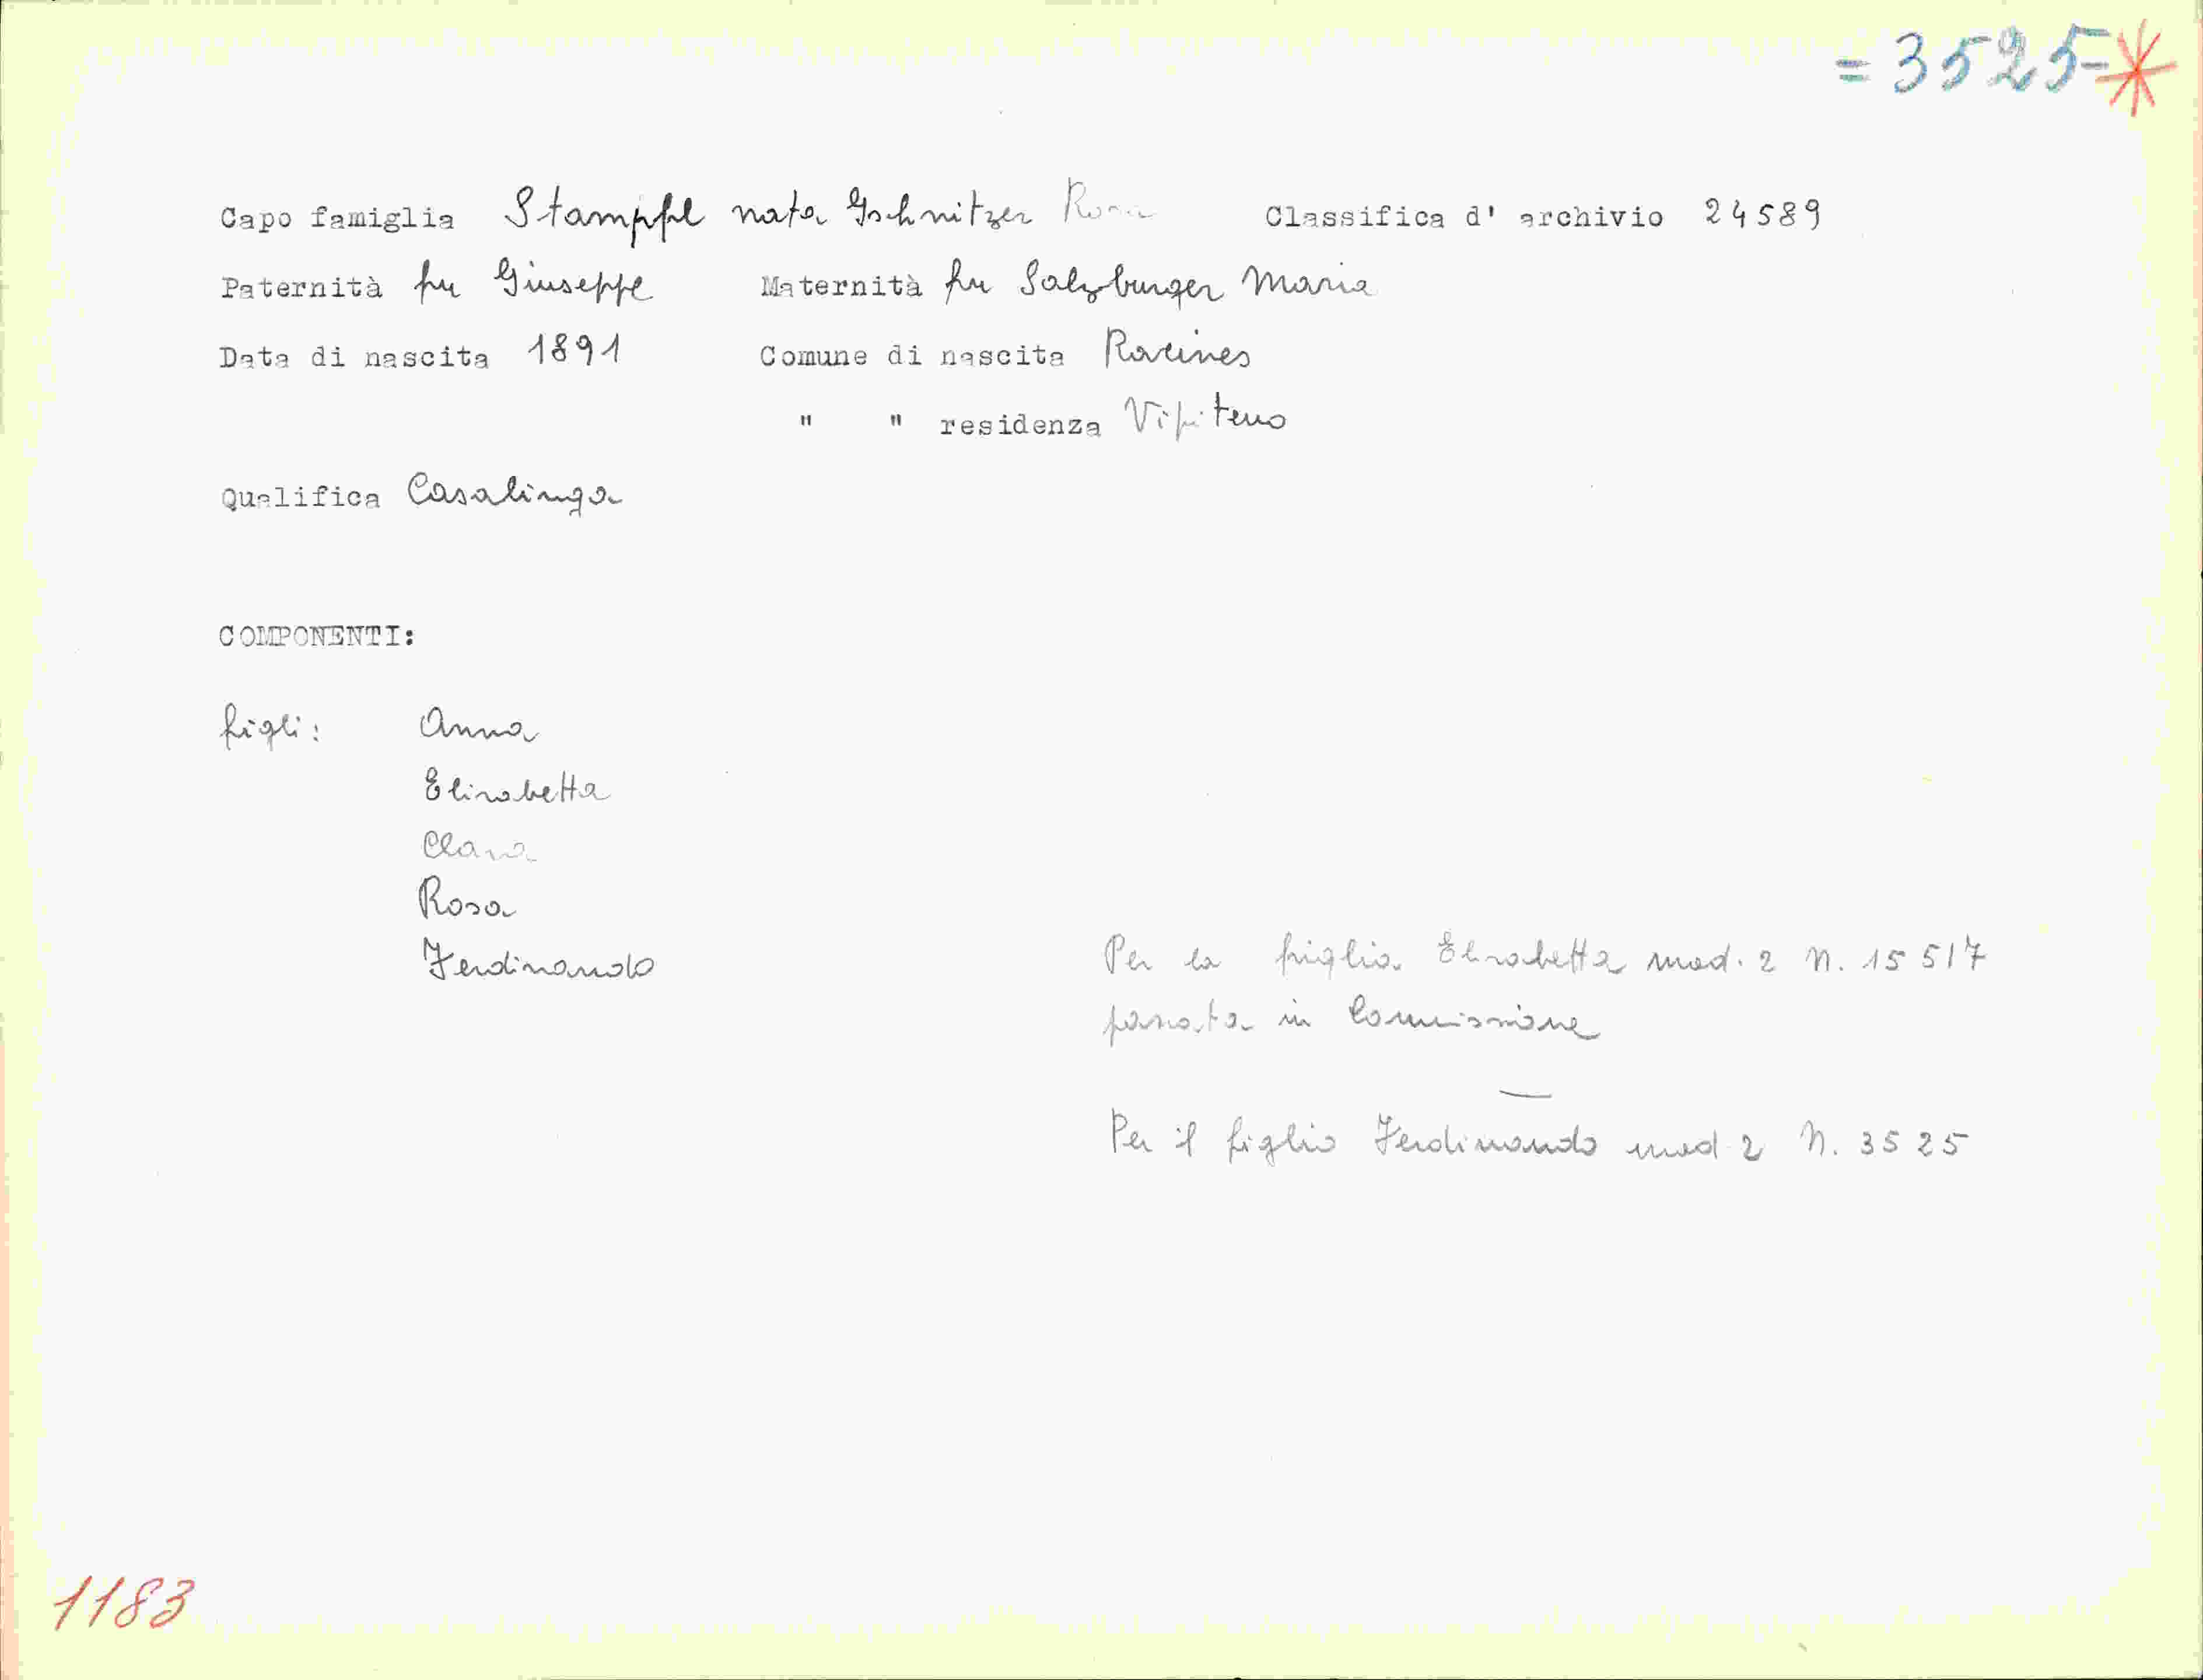 = 3525 = *
Capo famiglia Stampfl nata Gschnitzer Rosa Classifica d' archivio 24589
Paternità fu Giuseppe Maternità fu Salzburger Maria
Data di nascita 1891 Comune di nascita Racines
" " residenza Vipiteno
Qualifica Casalinga
COMPONENTI:
figli: Anna
Elisabetta
Clara
Rosa
Ferdinando
Per la figlia Elisabetta mod. 2 N. 15517
passata in Commissione
—
Per il figlio Ferdinando mod 2 N. 3525
1183